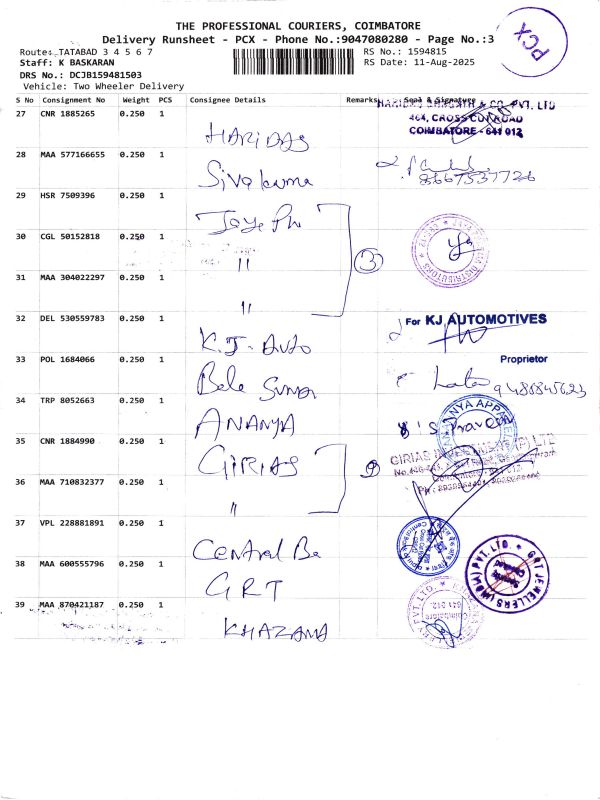 THE PROFESSIONAL COURIERS, COIMBATORE
Delivery Runsheet - PCX - Phone No.:9047080280 - Page No.:3
PCX
Route: TATABAD 3 4 5 6 7
RS No.: 1594815
Staff: K BASKARAN
RS Date: 11-Aug-2025
DRS No.: DCJB159481503
Vehicle: Two Wheeler Delivery
S No Consignment No Weight PCS Consignee Details Remarks Seal & Signature
& CO. PVT. LTD
464, CROSS CUT ROAD
COIMBATORE - 641 012
27 CNR 1885265 0.250 1 HARIDAS
28 MAA 577166655 0.250 1 Sivakuma
8667537726
29 HSR 7509396 0.250 1 Jaye Ph
30 CGL 50152818 0.250 1 "
3
DISTRIBUTORS
31 MAA 304022297 0.250 1 "
32 DEL 530559783 0.250 1 K.J. Auto
For KJ AUTOMOTIVES
Proprietor
33 POL 1684066 0.250 1 Bala Suma
Lata 9488845623
34 TRP 8052663 0.250 1 ANANYA
ANANYA APPAREL
S Praveen
35 CNR 1884990 0.250 1 GIRIAS
GIRIAS INVESTMENT (P) LTD
36 MAA 710832377 0.250 1 "
37 VPL 228881891 0.250 1 Central Ba
38 MAA 600555796 0.250 1 GRT
GRT JEWELLERS (INDIA) PVT. LTD.
39 MAA 870421187 0.250 1 KHAZANA
PVT. LTD.
Coimbatore
641 012.